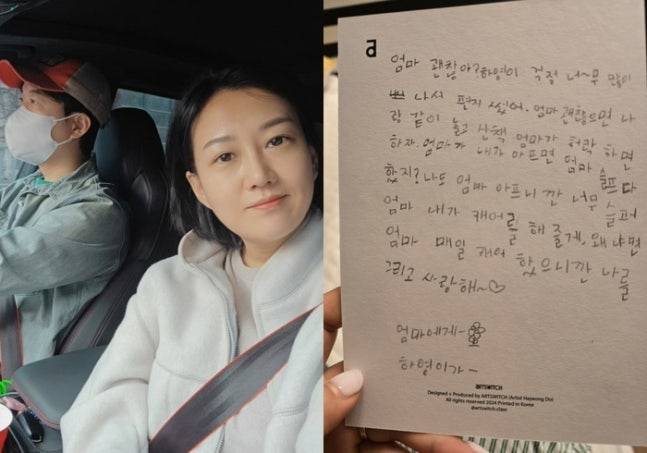 a
엄마 괜찮아? 하영이 걱정 너~무 많이
나서 편지 썼어. 엄마 괜찮으면 나
랑 같이 놀고 산책 엄마가 허락 하면
하자. 엄마가 내가 아프면 엄마 슬프다
했지? 나도 엄마 아프니깐 너무 슬퍼
엄마 내가 케어를 해 줄게. 왜냐면
엄마 매일 케어 했으니깐 나를
그리고 사랑해~♡
엄마에게-
하영이가-
ARTSWITCH
Designed & Produced by ARTSWITCH (Artist Hayeong Do)
All rights reserved 2024 Printed in Korea
@artswitch.class